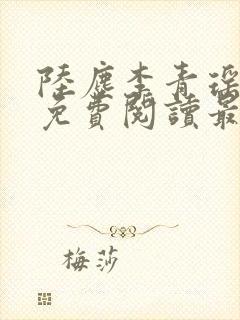 陸塵李青瑤
免費閱讀最
梅莎